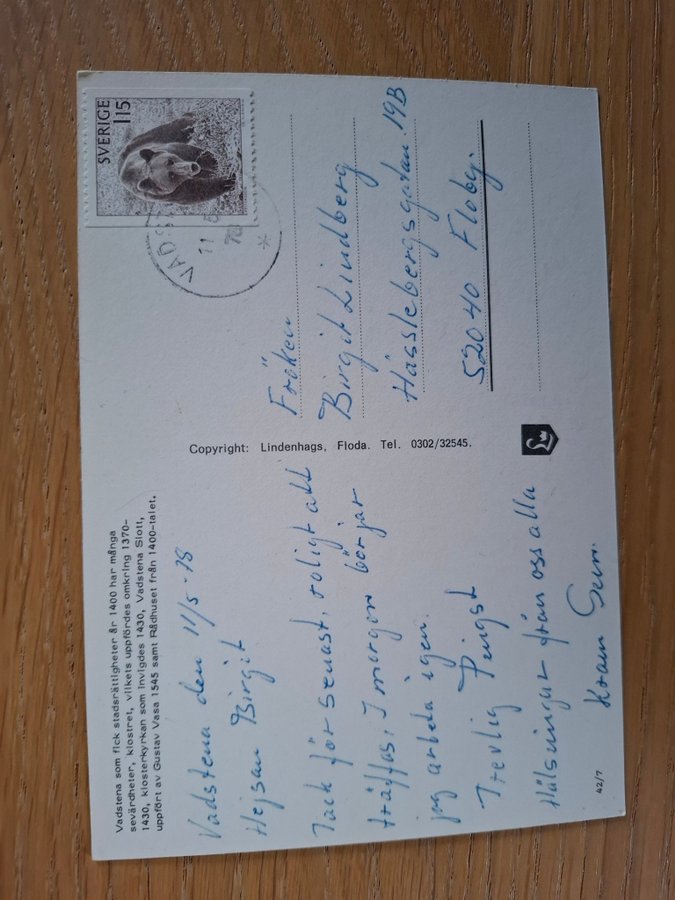 Vadstena som fick stadsrättigheter år 1400 har många
sevärdheter, klostret, vilkets uppfördes omkring 1370–
1430, klosterkyrkan som invigdes 1430, Vadstena Slott,
uppfört av Gustav Vasa 1545 samt Rådhuset från 1400-talet.
Vadstena den 11/5-78
Hejsan Birgit
Tack för senast, roligt att
träffas, I morgon börjar
jag arbeta igen.
Trevlig Pingst
Hälsningar från oss alla
Kram
42/7
Copyright: Lindenhags, Floda. Tel. 0302/32545.
SVERIGE
115
VADST
11 5
78
Fröken
Birgit Lindberg
Hässlebergsgatan 19B
52040 Floby.